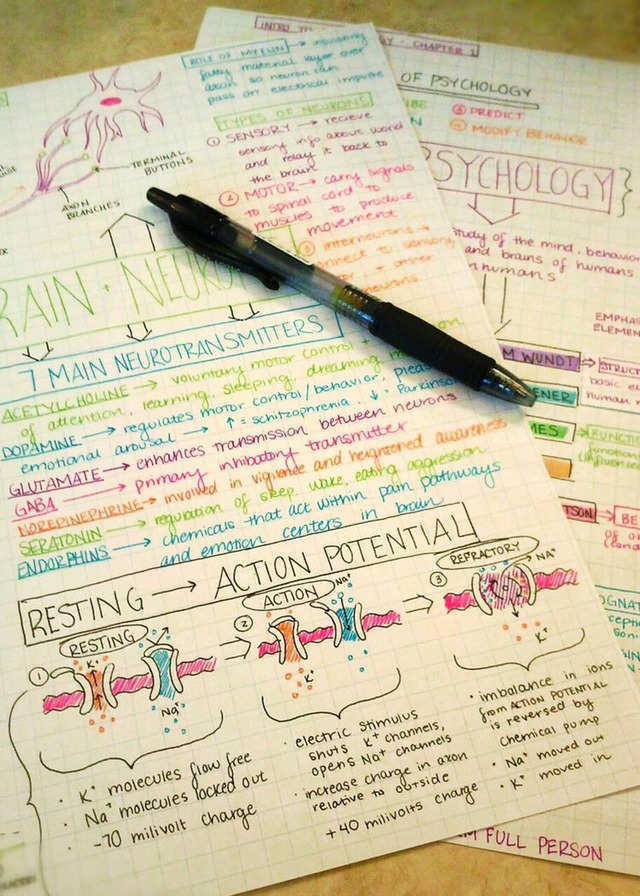 ROLE OF MYELIN → insulating
fatty material layer over
axon so neuron can
pass on electrical impulse
TYPES OF NEURONS
① SENSORY → recieve
sensory info about world
and relay it back to
the brain
② MOTOR → carry signals
to spinal cord to
muscles to produce
movement
③ interneurons →
connect to sensory
+ other
neurons
TERMINAL
BUTTONS
AXON
BRANCHES
RAIN + NEURO
7 MAIN NEUROTRANSMITTERS
ACETYLCHOLINE → voluntary motor control +
of attention, learning, sleeping, dreaming,
DOPAMINE → regulates motor control/behavior,
emotional arousal → ↑ = schitzophrenia ↓ = Parkinson
GLUTAMATE → enhances transmission between neurons
GABA → primary inhibitory transmitter
NOREPINEPHRINE → involved in vigilence and heightened awareness
SERATONIN → regulation of sleep, wake, eating, aggression
ENDORPHINS → chemicals that act within pain pathways
and emotion centers in brain
RESTING → ACTION POTENTIAL
① RESTING
K⁺
Na⁺
② ACTION
Na⁺
K⁺
③ REFRACTORY
NA⁺
K⁺
· K⁺ molecules flow free
· Na⁺ molecules locked out
· -70 milivolt charge
· electric stimulus
shuts K⁺ channels,
opens Na⁺ channels
· increase charge in axon
relative to outside
+40 milivolts charge
· imbalance in ions
from ACTION POTENTIAL
is reversed by
chemical pump
· Na⁺ moved out
· K⁺ moved in
INTRO TO
GY - CHAPTER 1
OF PSYCHOLOGY
IBE
③ PREDICT
④ MODIFY BEHAVIOR
PSYCHOLOGY}
study of the mind, behavior
and brains of humans
nhumans
EMPHAS
ELEMEN
M WUNDT → STRUCT
basic e
human m
ENER
MES → FUNCTI
TSON → BE
OGNAT
FULL PERSON